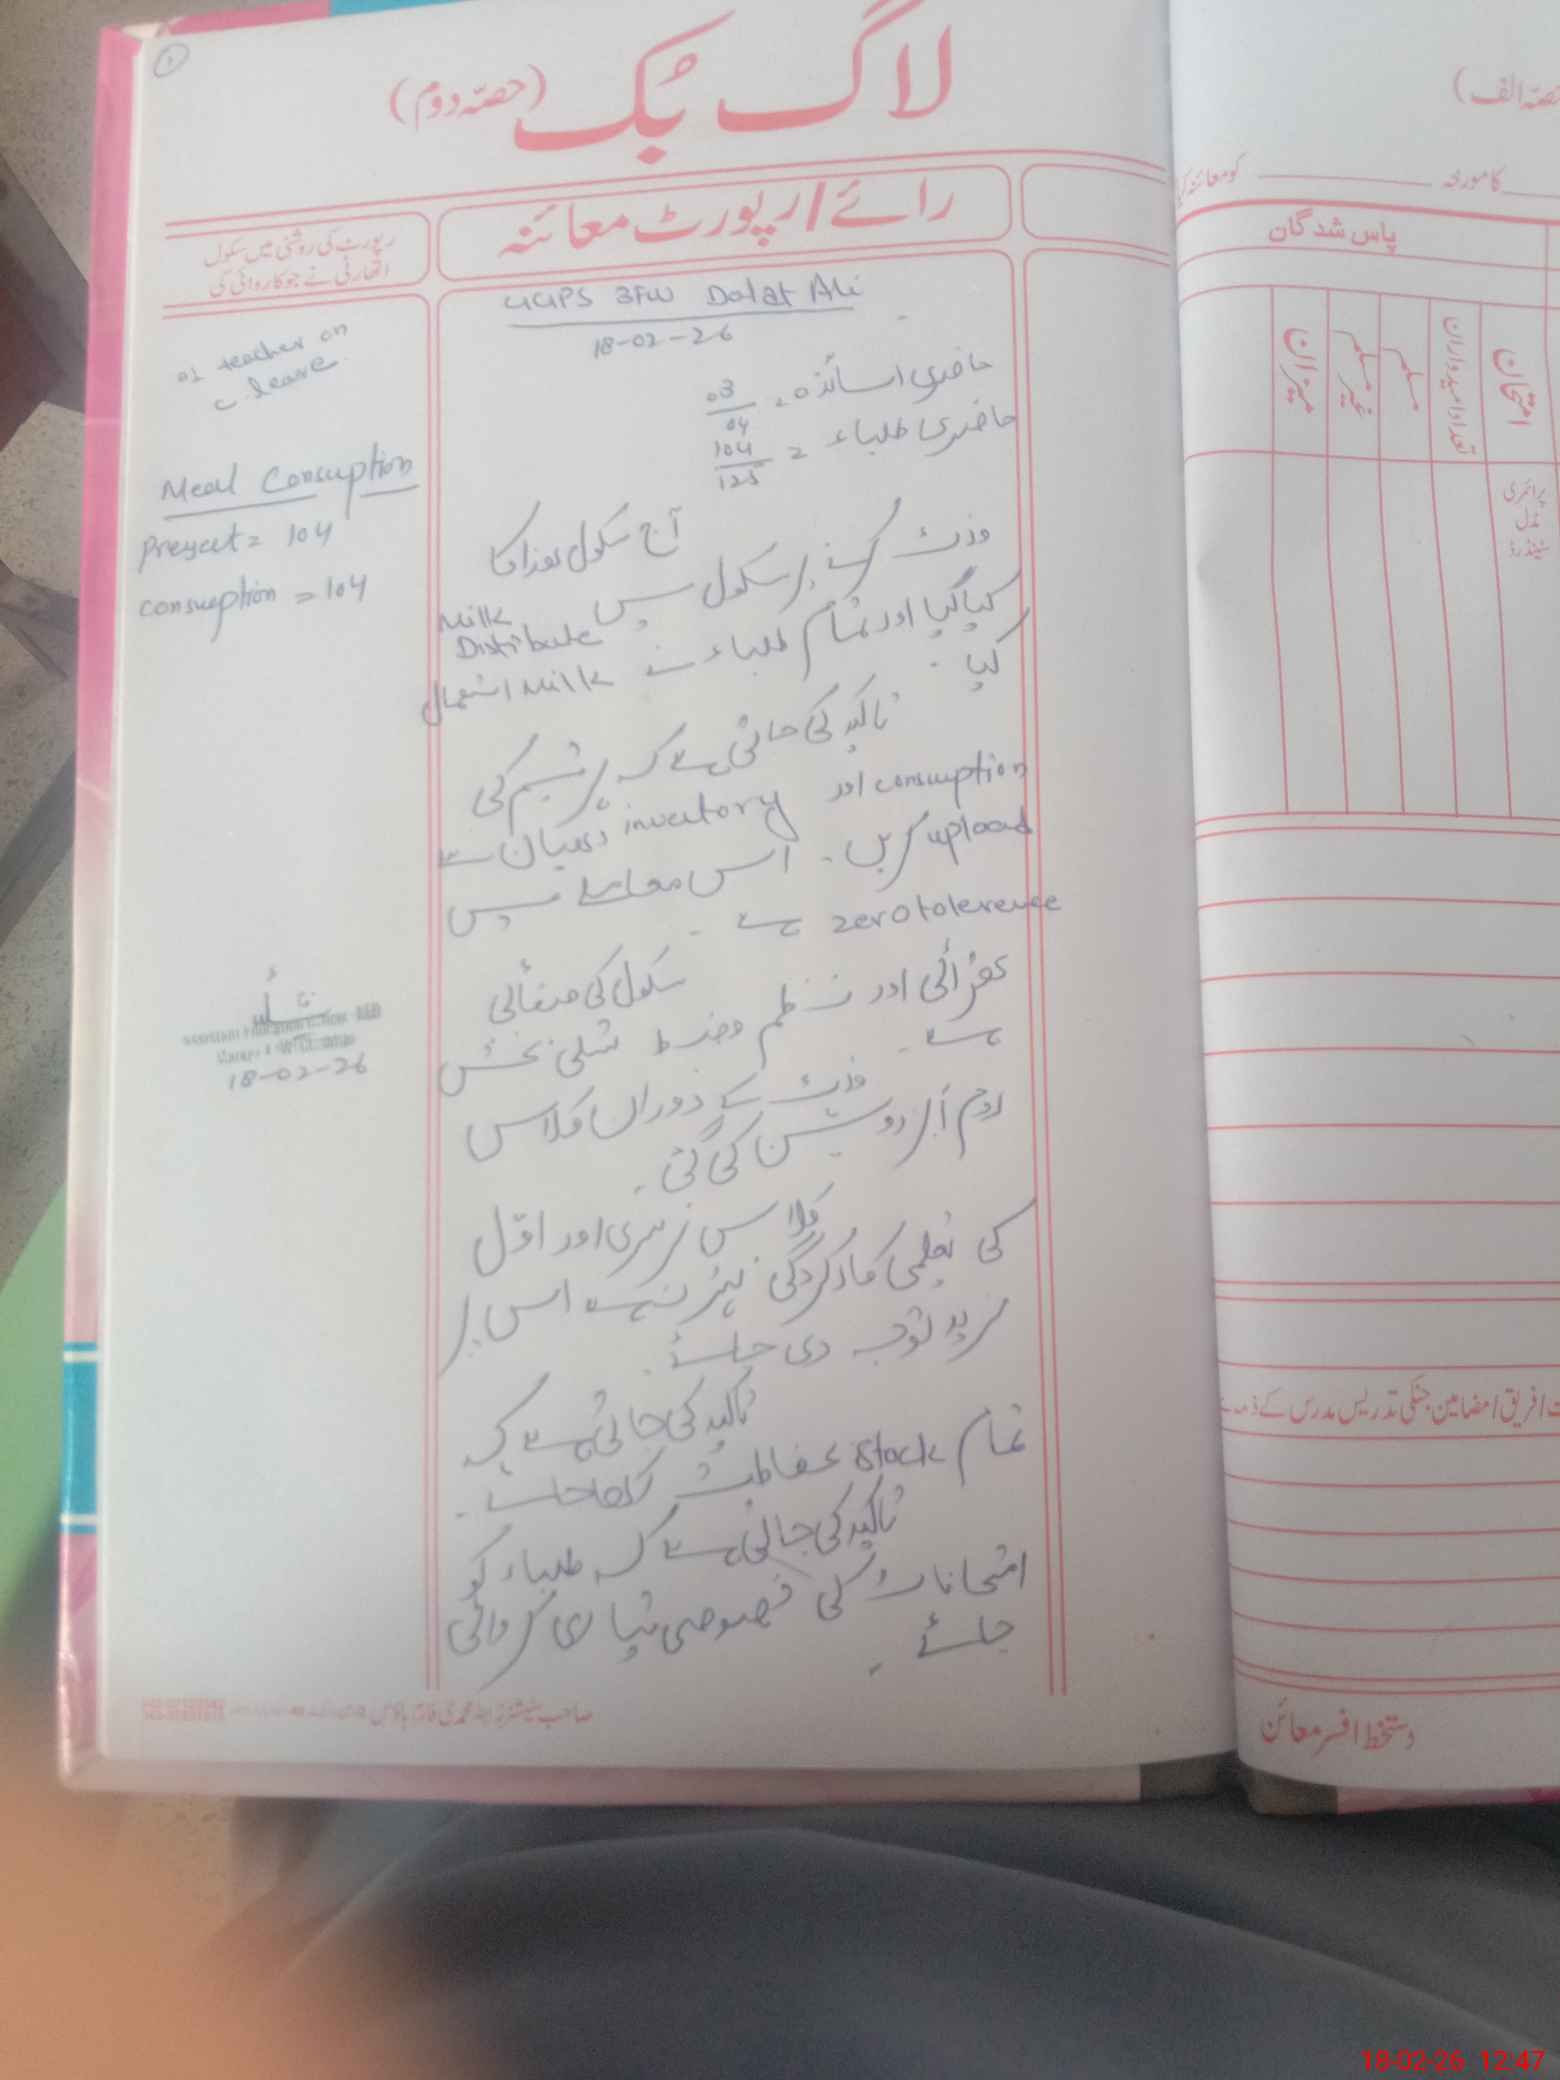 ۱
لاگ بُک (حصّہ دوم)
رائے / رپورٹ معائنہ
رپورٹ کی روشنی میں سکول
اتھارٹی نے جو کاروائی کی
GGPS 3FW Dolat Ali
18-02-26
حاضری اساتذہ = 03/04
حاضری طلباء = 104/125
آج سکول ھذا کا
وزٹ کرنے پر سکول میں Milk Distribute
کیا گیا اور تمام طلباء نے Milk استعمال
کیا۔
تاکید کی جاتی ہے کہ ہر قسم کی
consuption اور inventory دھیان سے
upload کریں۔ اس معاملے میں
zero tolerence ہے۔
سکول کی صفائی
ستھرائی اور نظم و ضبط تسلی بخش
ہے۔
وزٹ کے دوران کلاس
روم آبزرویشن کی گئی۔
کلاس نرسری اور اوّل
کی تعلیمی کارکردگی بہتر نہ ہے اس پر
مزید توجہ دی جائے۔
تاکید کی جاتی ہے کہ
تمام Stock بحفاظت رکھا جائے۔
تاکید کی جاتی ہے کہ طلباء کو
امتحانات کی خصوصی تیاری کروائی
جائے۔
01 teacher on
c.leave
Meal Consuption
Present = 104
consuption = 104
18-02-26
حصّہ الف)
کا مورخہ
کو معائنہ کیا
پاس شدگان
امتحان
تعداد امیدواران
مسلم
غیر مسلم
میزان
پرائمری
مڈل
سٹینڈرڈ
افریق / مضامین جنکی تدریس مدرس کے ذمہ ہے
دستخط افسر معائن
18-02-26 12:47